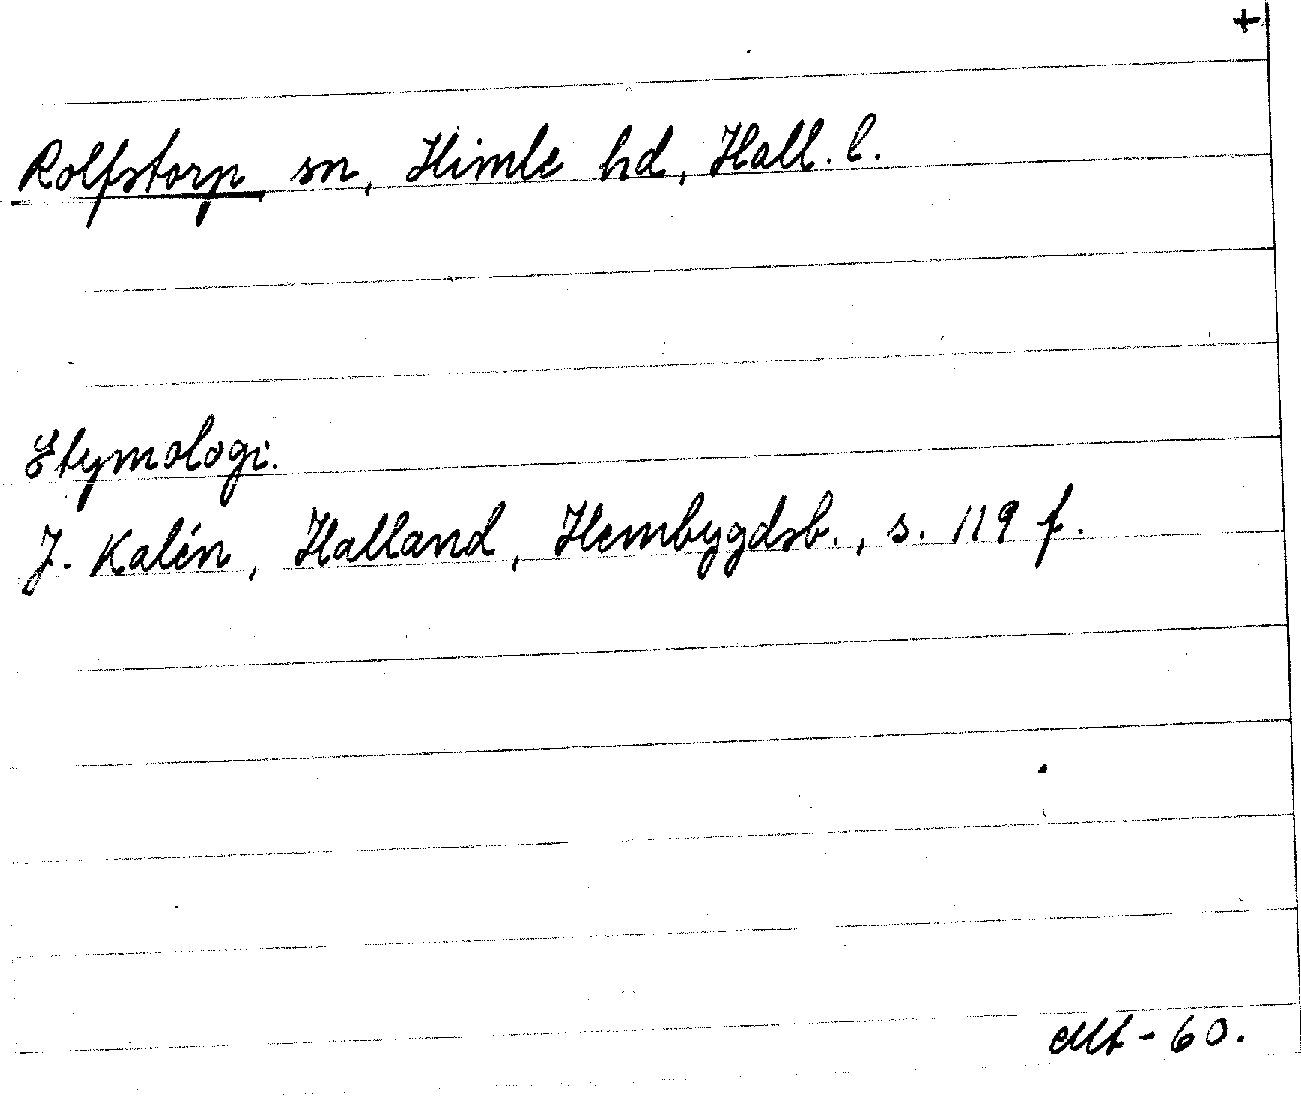 +
Rolfstorp sn, Himle hd, Hall. l.
Etymologi.
J. Kalén, Halland, Hembygdsb., s. 119 f.
Mt - 60.